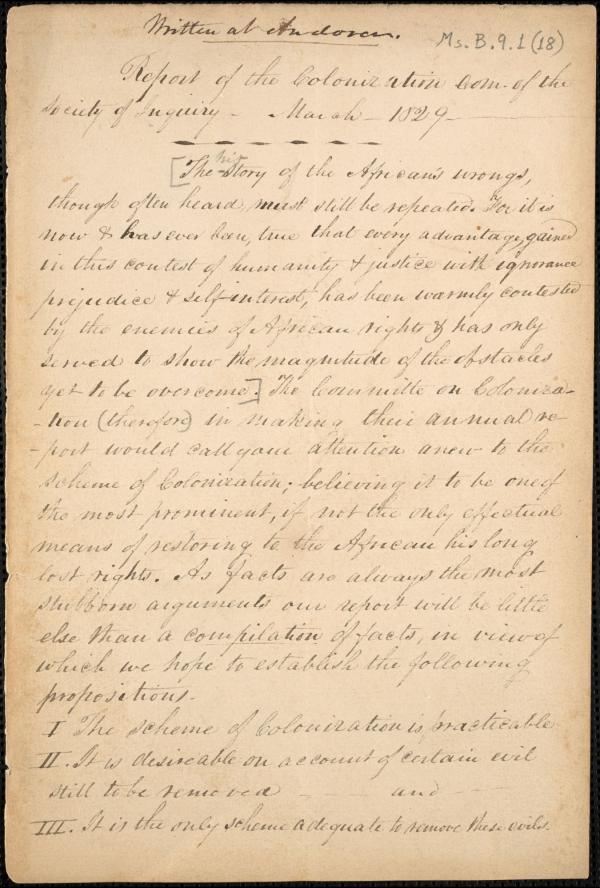 Written at Andover.
Ms. B. 9. 1 (18)
Report of the Colonization Com. of the
Society of Inquiry - March - 1829 -
[The history of the African's wrongs,
though often heard, must still be repeated. For it is
now & has ever been, true that every advantage gained
in this contest of humanity & justice with ignorance
prejudice & self-interest, has been warmly contested
by the enemies of African rights & has only
served to show the magnitude of the obstacles
yet to be overcome.] The Committe on Coloniza-
-tion (therefore) in making their annual re-
-port would call your attention anew to the
scheme of Colonization; believing it to be one of
the most prominent, if not the only effectual
means of restoring to the African his long
lost rights. As facts are always the most
stubborn arguments our report will be little
else than a compilation of facts, in view of
which we hope to establish the following
propositions.
I The scheme of Colonization is practicable
II. It is desireable on account of certain evil
still to be removed - and -
III. It is the only scheme adequate to remove these evils.